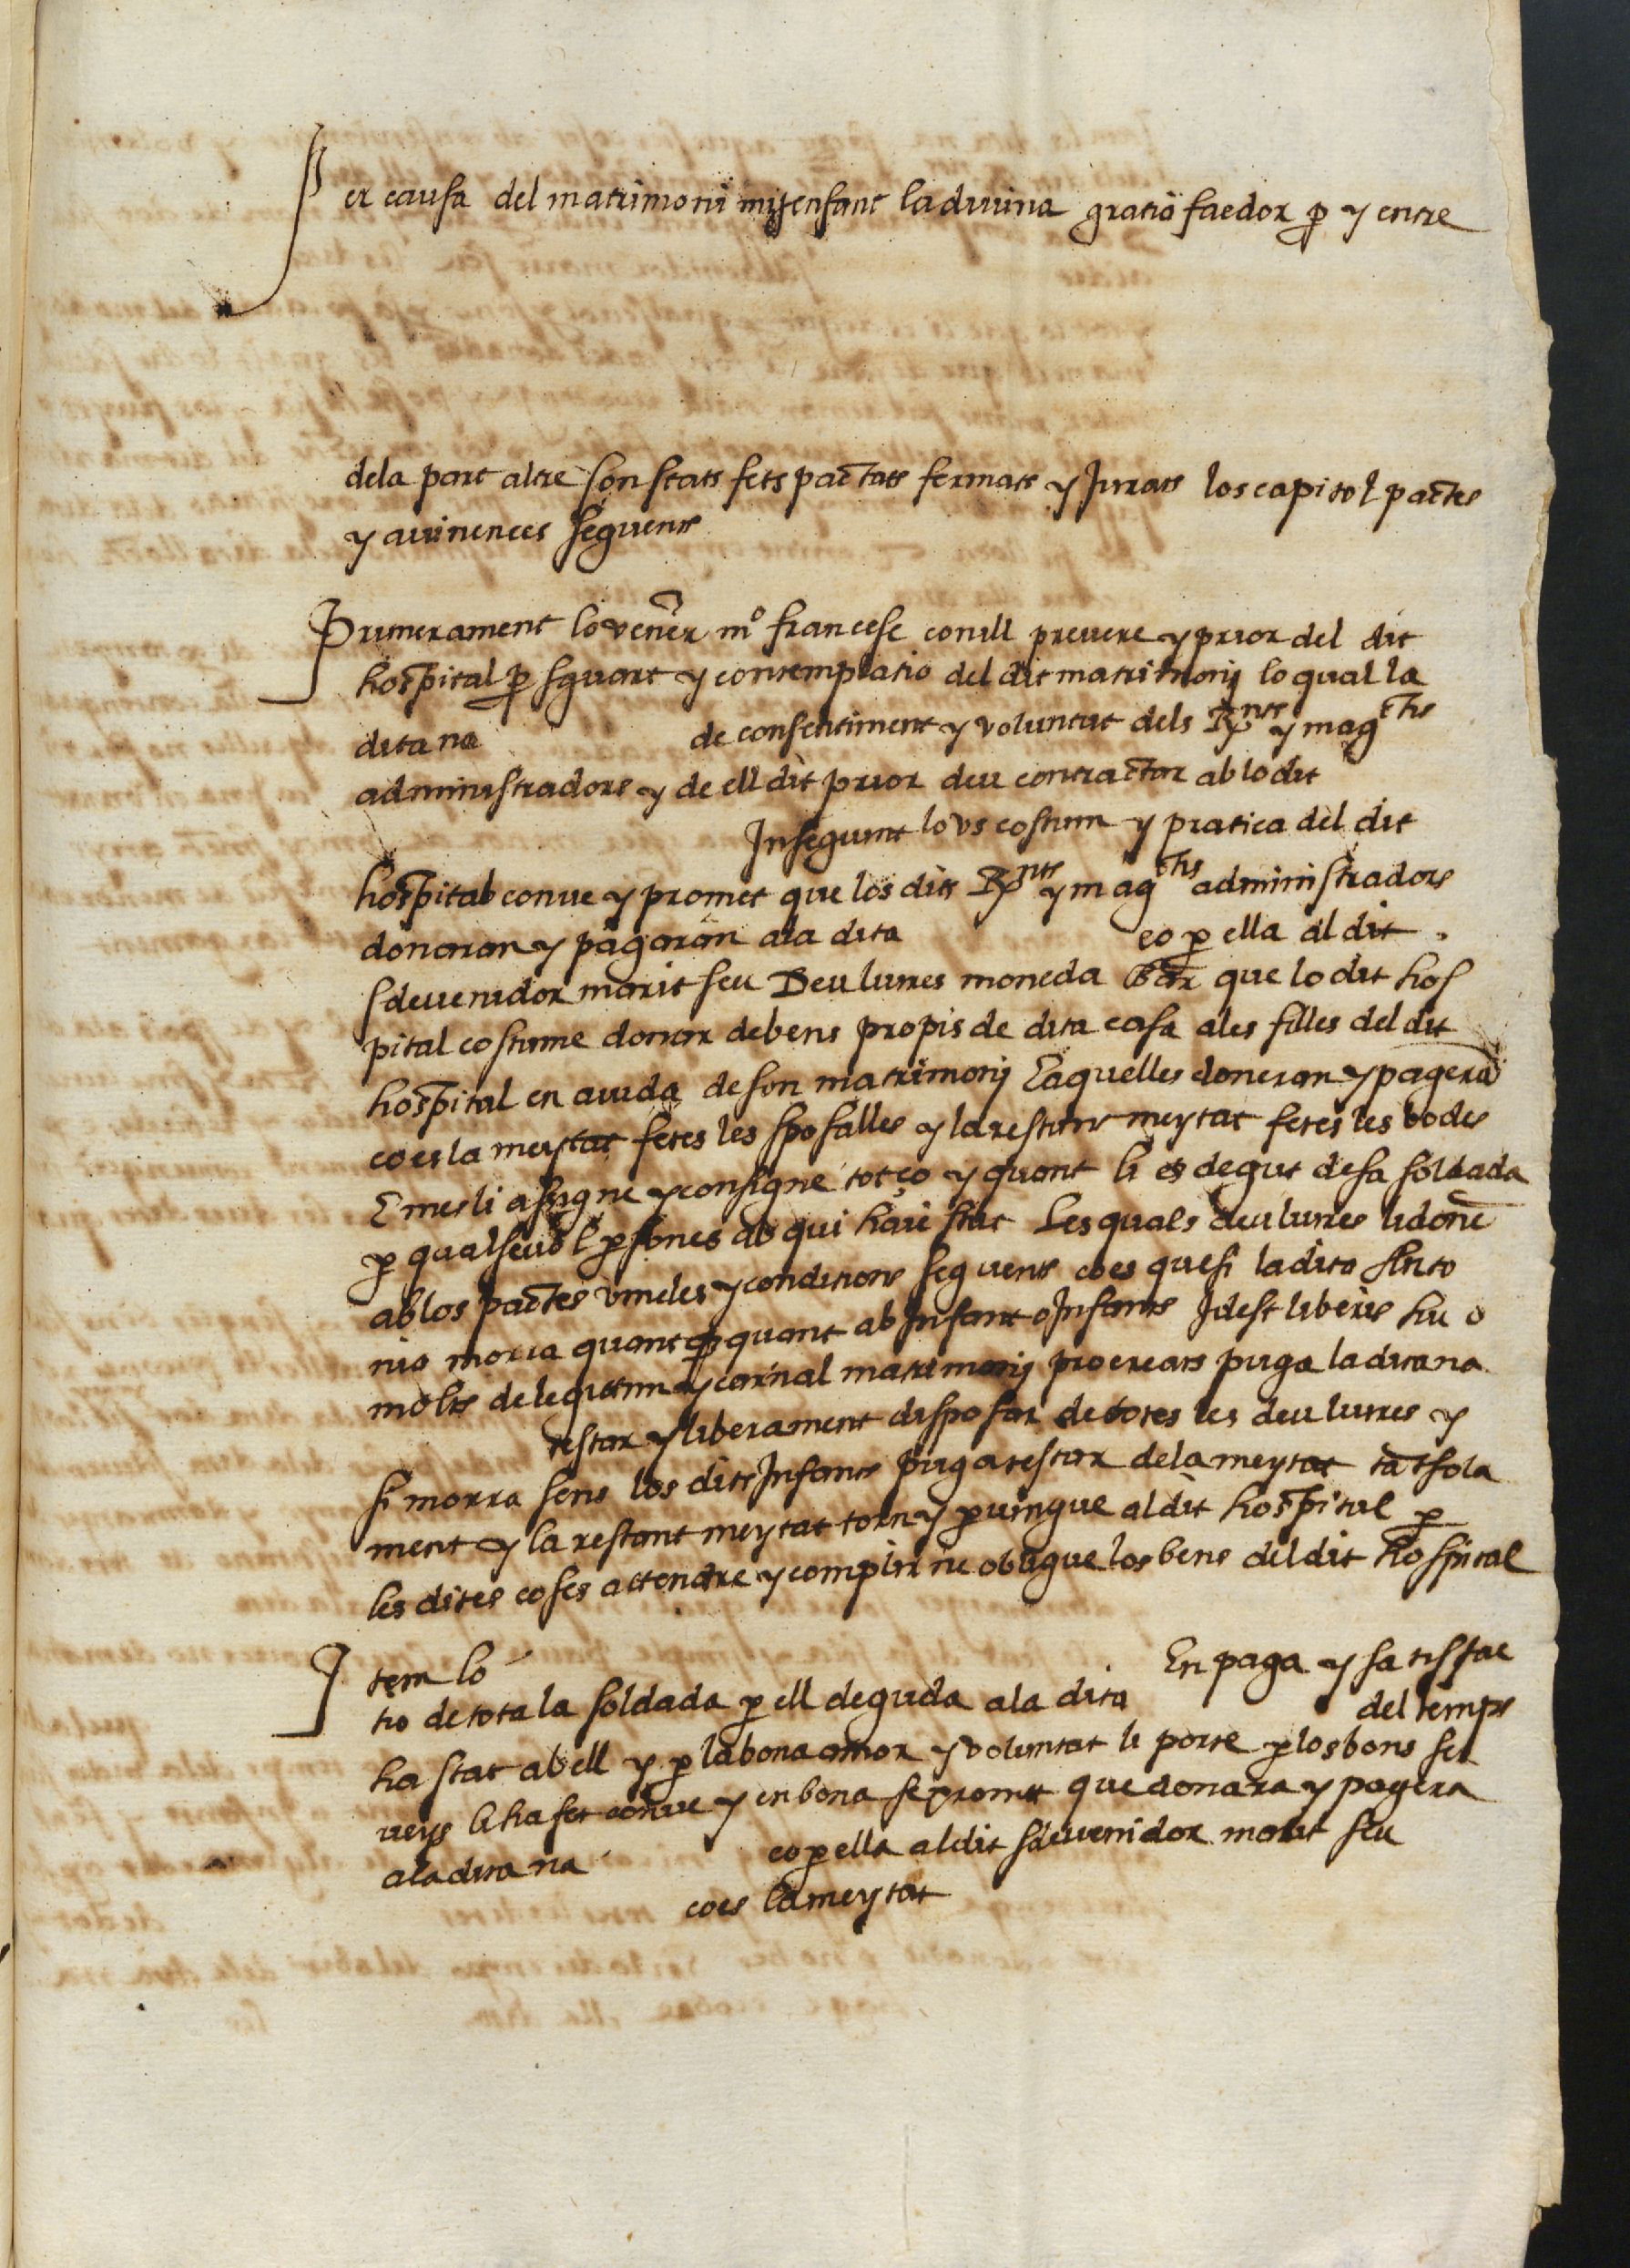 Per causa del matrimoni mijensant la divina gratia faedor p y entre
dela part altre son stats fets pactats fermats y Jurats los capitol pactes
y avinences seguents
Primerament lo vener mº francesc conill prevere y prior del dit
hospital p sguart y contemplatio del dit matrimonj lo qual la
dita na de consentiment y voluntat dels R.nts y mag.chs
administradors y de ell dit prior deu contractar ab lo dit
Inseguint lo us costum y pratica del dit
hospital conve y promet que los dits R.nts y mag.chs administradors
donaran y pagaran ala dita eo p ella al dit
sdevenidor marit seu Deu liures moneda Bar que lo dit hos
pital costume donar de bens propis de dita casa ales filles del dit
hospital en aiuda de son matrimonj E aquelles doneran y pagera
coes la meytat fetes les sposalles y la restant meytat fetes les bodes
E mes li assigne y consigne tot ço y quant li es degut de sa soldada
p qualsevol psones ab qui haie stat Les quals deu liures li done
ab los pactes vincles y conditions seguents coes que si la dita Anto
nia morra quant q quant ab Infant o Infants Idest liberis hu o
molts de legittim y carnal matrimonj procreats puga la dita na
testar y liberament disposar de totes les deu liures y
si morra sens los dits Infants puga testar dela meytat tat sola
ment y la restant meytat torn y pvingue al dit hospital p
les dites coses attendre y complir ne obligue los bens del dit hospital
Item lo En paga y satisfac
tio de tota la soldada p ell deguda ala dita del temps
ha stat ab ell y p la bona amor y voluntat li porte p los bons ser
veys li ha fet conve y en bona fe promet que donara y pagera
ala dita na eo p ella al dit sdevenidor marit seu
coes la meytat